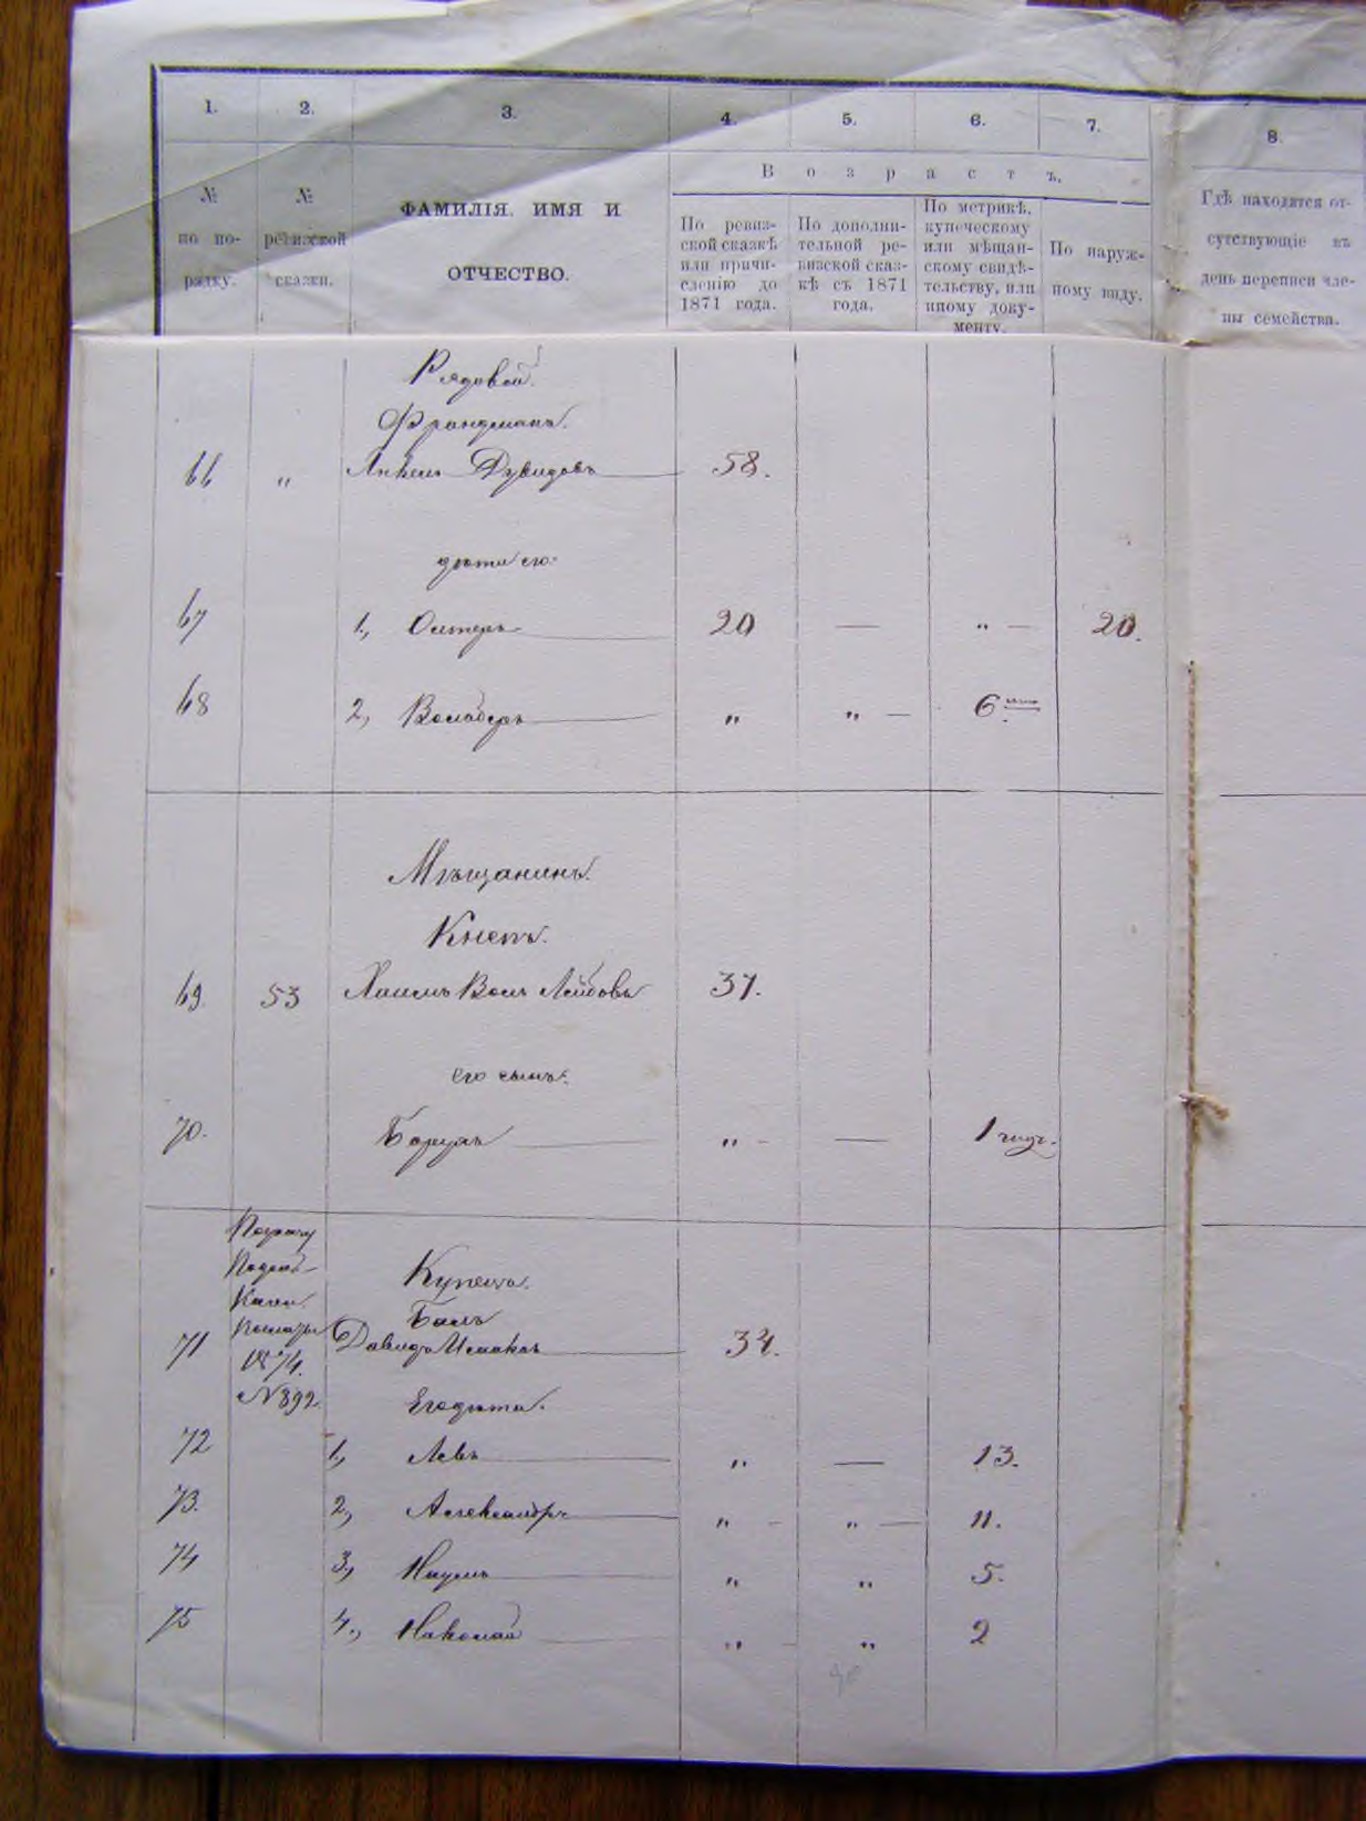 1. 2. 3. 4. 5. 6. 7. 8.
№ по порядку.
№ ревизской сказки.
ФАМИЛІЯ, ИМЯ И
ОТЧЕСТВО.
Возрастъ.
По ревиз-
ской сказкѣ
или причи-
сленію до
1871 года.
По дополни-
тельной ре-
визской сказ-
кѣ съ 1871
года.
По метрикѣ,
купеческому
или мѣщан-
скому свидѣ-
тельству, или
иному доку-
менту.
По наруж-
ному виду.
Гдѣ находятся от-
сутствующіе въ
день переписи чле-
ны семейства.
Рядовой.
66 " Дувидовъ 58.
дѣти его:
67 1., 20 — " — 20.
68 2, " " — 6
Мѣщанинъ.
69 53 Хаимъ Лейбовъ 37.
его сынъ:
70. Борухъ " — — 1 годъ.
Купецъ.
71 Давидъ 34.
1874.
№ 892.
Его дѣти.
72 1., Левъ " — 13.
73. 2., Александръ " — " — 11.
74 3., Наумъ " " 5.
75 4., Николай " — " 2